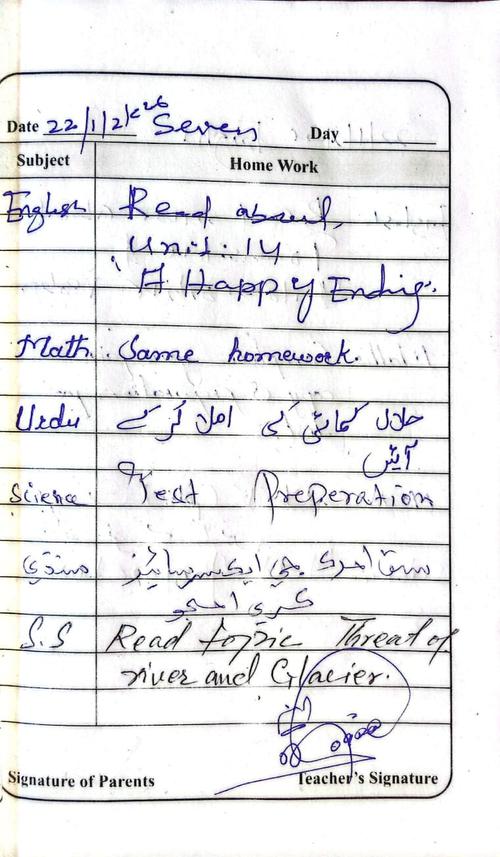 Date 22/1/2k26 Seven Day
Subject Home Work
English Read about
Unit: 14
"A Happy Ending.
Math. Same homework.
Urdu حلال کمائی کی املا کر کے
آئیں
Science Test Preperation
سنڌي سبق امڙ جي ايڪسرسائيز
ڪري اچو
S.S Read topic Threat of
river and Glacier.
Signature of Parents Teacher's Signature